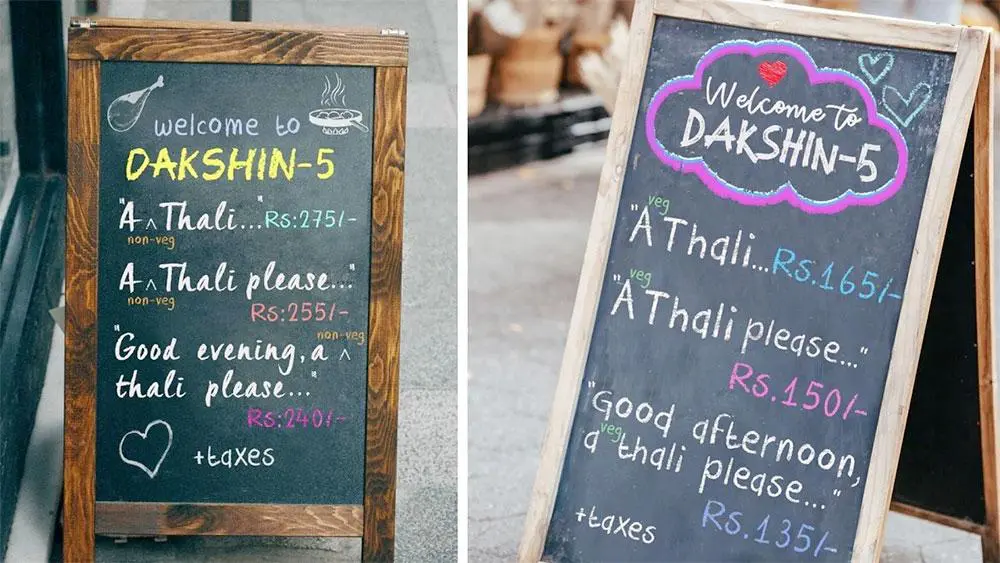 welcome to
DAKSHIN-5
"A ^ Thali..." Rs:275/-
non-veg
A ^ Thali please..."
non-veg
Rs:255/-
non-veg
"Good evening, a ^
thali please..."
Rs:240/-
+taxes
Welcome to
DAKSHIN-5
veg
"A Thali... Rs.165/-
veg
"A Thali please..."
Rs.150/-
"Good afternoon,
a veg thali please..."
Rs.135/-
+taxes